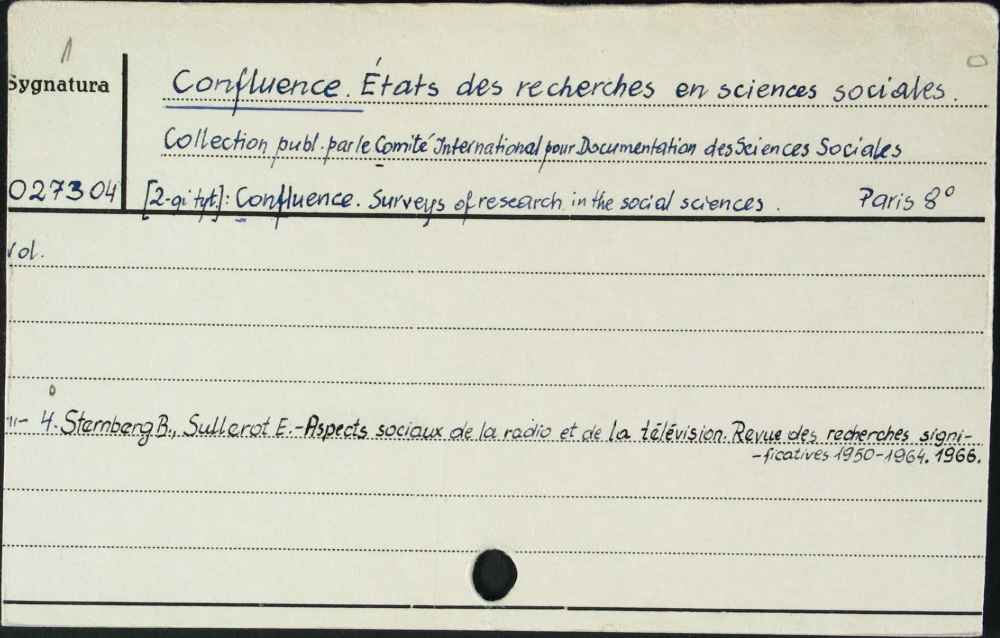 1
Sygnatura
Confluence. États des recherches en sciences sociales.
Collection publ. par le Comité International pour Documentation des Sciences Sociales
027304 [2-gi tyt.]: Confluence. Surveys of research in the social sciences. Paris 8°
Vol.
-"- 4. Sternberg B., Sullerot E. - Aspects sociaux de la radio et de la télévision. Revue des recherches signi-
-ficatives 1950-1964. 1966.